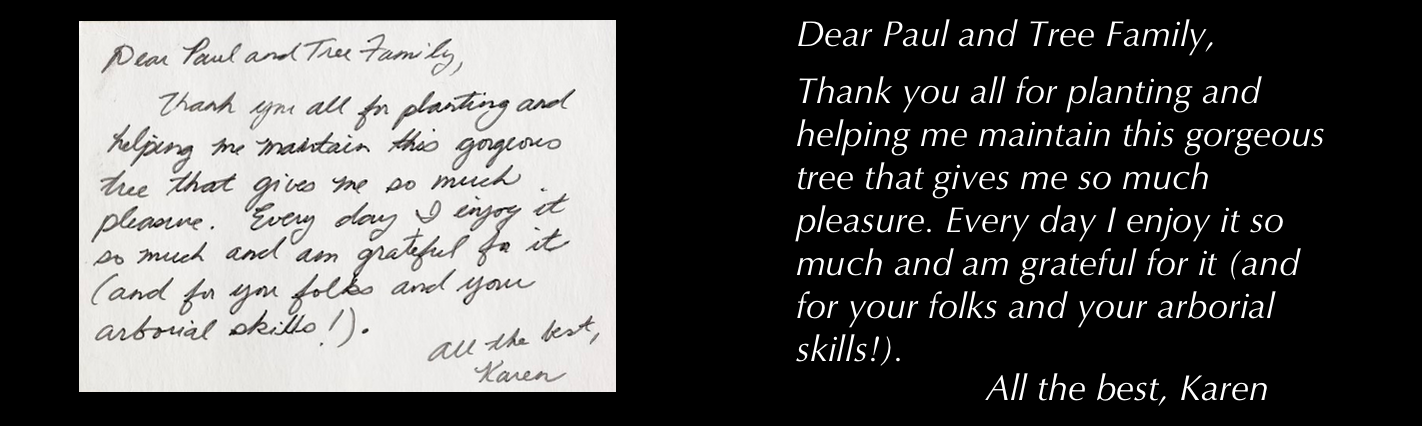 Dear Paul and Tree Family,
Thank you all for planting and
helping me maintain this gorgeous
tree that gives me so much
pleasure. Every day I enjoy it
so much and am grateful for it
(and for you folks and your
arborial skills!).
All the best,
Karen
Dear Paul and Tree Family,
Thank you all for planting and
helping me maintain this gorgeous
tree that gives me so much
pleasure. Every day I enjoy it so
much and am grateful for it (and
for your folks and your arborial
skills!).
All the best, Karen